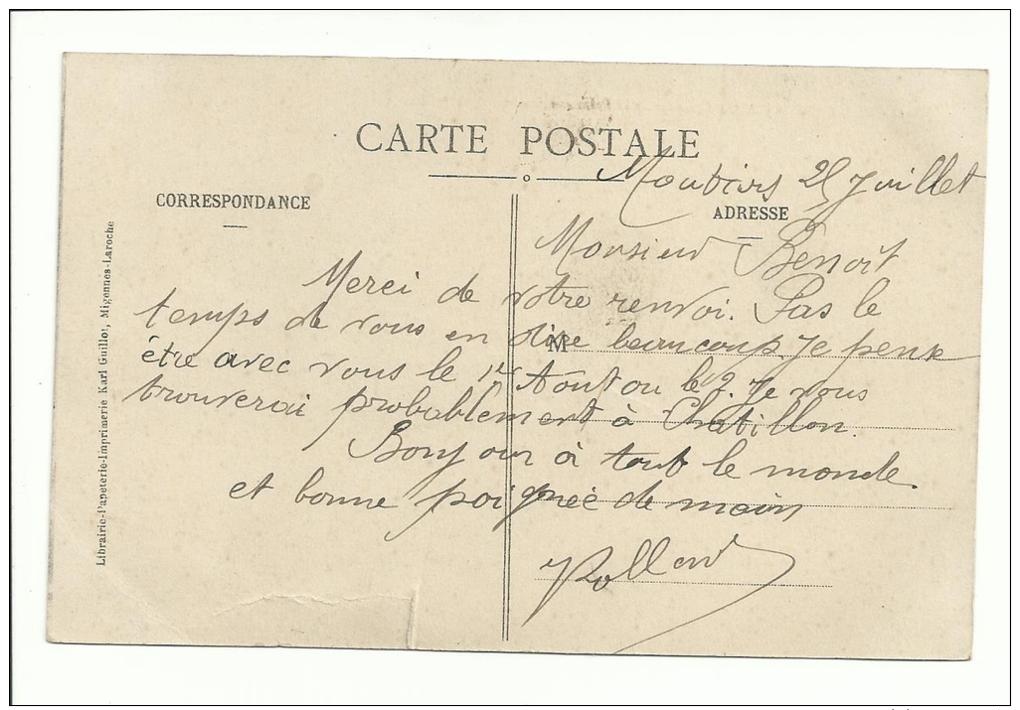 CARTE POSTALE
Moutiers 25 Juillet
CORRESPONDANCE
ADRESSE
Monsieur Benoît
Merci de votre renvoi. Pas le
temps de vous en dire beaucoup. Je pense
M
être avec vous le 1er Aout ou le 2. Je vous
trouverai probablement à Chatillon.
Bonjour à tout le monde
et bonne poignée de main
Librairie-Papeterie-Imprimerie Karl Guillot, Migennes-Laroche